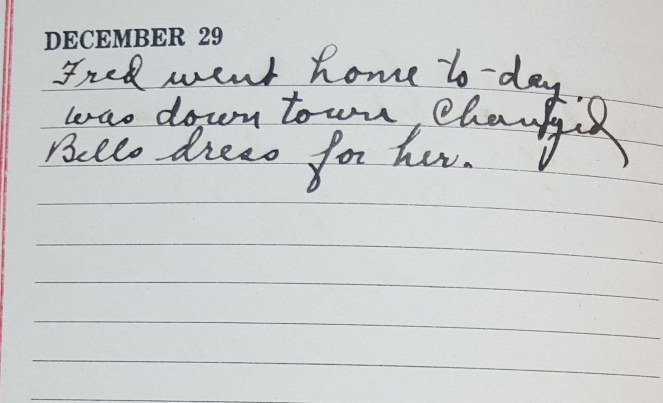 DECEMBER 29
Fred went home to-day.
was down town. Changed
Bells dress for her.